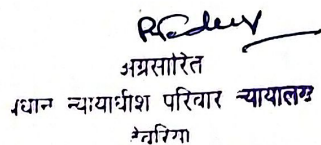 अग्रसारित
प्रधान न्यायाधीश परिवार न्यायालय
देवरिया